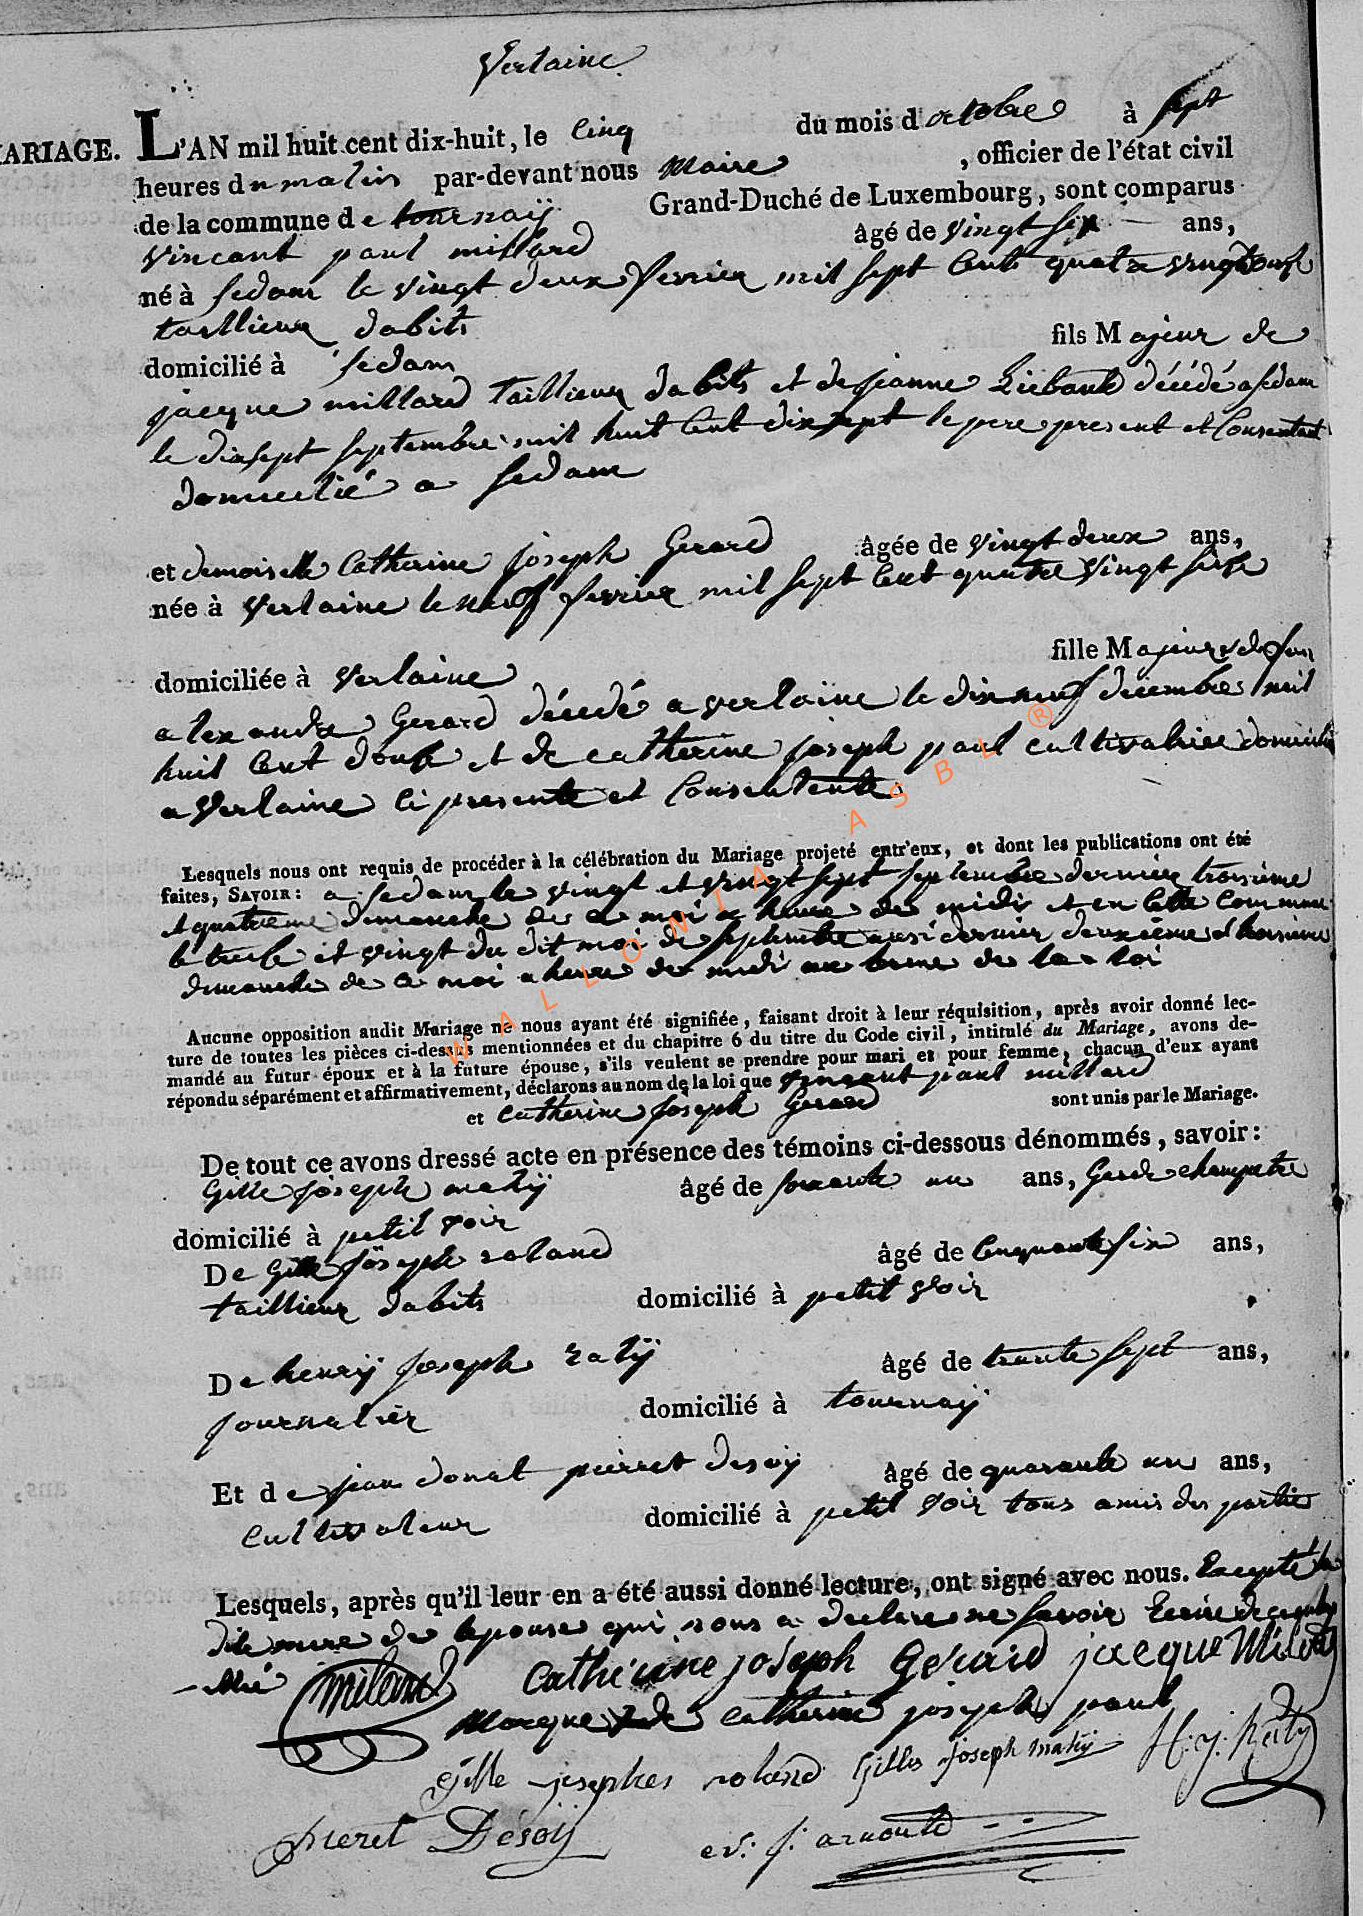 Verlaine
MARIAGE. L'AN mil huit cent dix-huit, le Cinq du mois d octobre à sept
heures du matin par-devant nous Maire , officier de l'état civil
de la commune de tournaÿ Grand-Duché de Luxembourg, sont comparus
Vincant paul millard âgé de vingt six ans,
né à sedan le vingt deux fevrier mil sept Cent quatre vingt onse
taillieur dabits
domicilié à sedam fils Majeur de
jacque millard taillieur dabits et de jeanne décédé a sedam
le dixsept septembre mil huit Cent dixsept le pere present et Consentant
domicilié a sedam
et demoiselle Catherine joseph Gerard âgée de vingt deux ans,
née à Verlaine le neuf fevrier mil sept Cent quatre vingt seise
domiciliée à Verlaine fille Majeur de feu
alexandre Gerard décédé a verlaine le dixneuf décembre mil
huit Cent douse et de catherine joseph paul cultivatrice domicilié
a Verlaine Ci presente et Consentente
Lesquels nous ont requis de procéder à la célébration du Mariage projeté entr'eux, et dont les publications ont été
faites, SAVOIR: a sedam le vingt et vingt sept septembre dernier troisieme
et quatrieme dimanche de Ce moi a heure de midi et en Cette Commune
le treise et vingt du dit moi de septembre aussi dernier deuxieme et troisieme
dimanche de Ce moi a heure de midi au terme de la loi
Aucune opposition audit Mariage ne nous ayant été signifiée, faisant droit à leur réquisition, après avoir donné lec-
ture de toutes les pièces ci-dessus mentionnées et du chapitre 6 du titre du Code civil, intitulé du Mariage, avons de-
mandé au futur époux et à la future épouse, s'ils veulent se prendre pour mari et pour femme, chacun d'eux ayant
répondu séparément et affirmativement, déclarons au nom de la loi que vincant paul millard
et Catherine joseph Gerard sont unis par le Mariage.
De tout ce avons dressé acte en présence des témoins ci-dessous dénommés, savoir:
Gille joseph mahÿ âgé de soixante un ans, Garde champetre
domicilié à petit voir
De Gille joseph roland âgé de Cinquante six ans,
taillieur dabits domicilié à petit voir
De henrÿ joseph âgé de trente sept ans,
journalier domicilié à tournaÿ
Et de jean donat pierret desoÿ âgé de quarante un ans,
cultivateur domicilié à petit voir tous amis des partie
Lesquels, après qu'il leur en a été aussi donné lecture, ont signé avec nous. Excepté la
dite mere de lepouse qui nous a declare ne savoir Ecrire
Milard Catherine joseph Gérard jacque Milard
Marque de catherine joseph paul
Gille joseph roland Gilles joseph mahÿ H. j.
pieret Désoÿ
WALLONIA ASBL ®